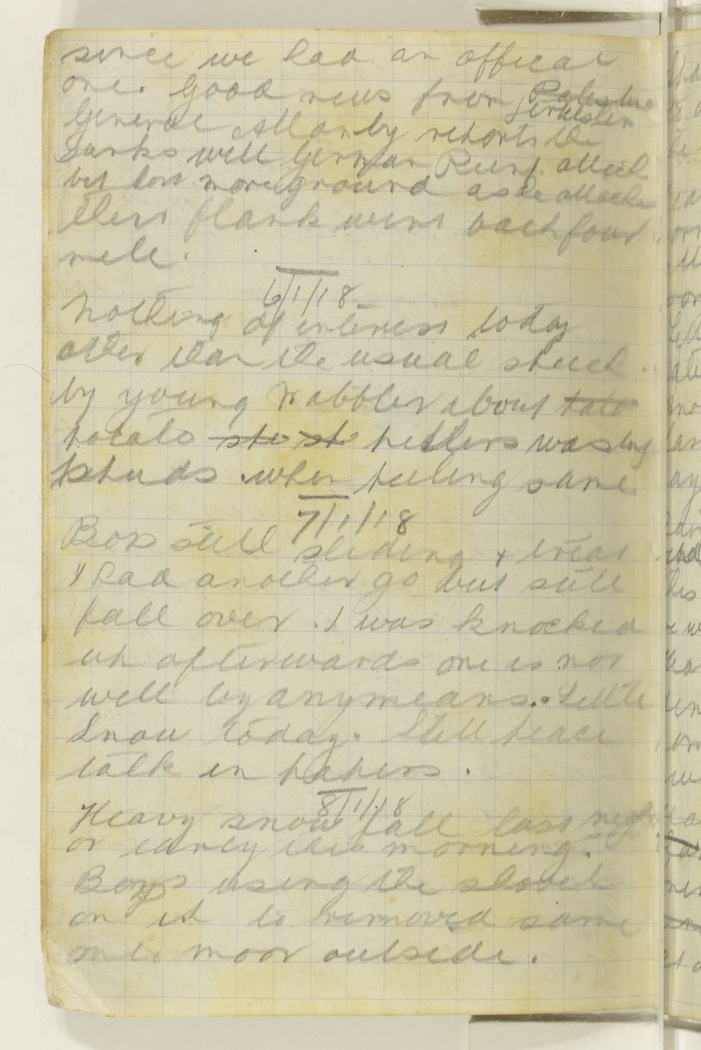 since we had an offical
one. Good news from Palestine
General Allanby reports the
Turks with German Reinf. attack
but lost more ground as he attacked
their flank went back four
mile.
6/1/18
Nothing of interess today
other than the usual
by young Wabbler about
potato peelers wasting
spuds when peeling same
7/1/18
Boys still sliding &
I had another go but still
fall over. I was knocked
up afterwards one is not
well by anymeans. Little
Snow today. Still peace
talk in papers.
8/1/18
Heavy snow fall last night
or early this morning.
Boys using the shovel
on it to removed same
onto moor outside.